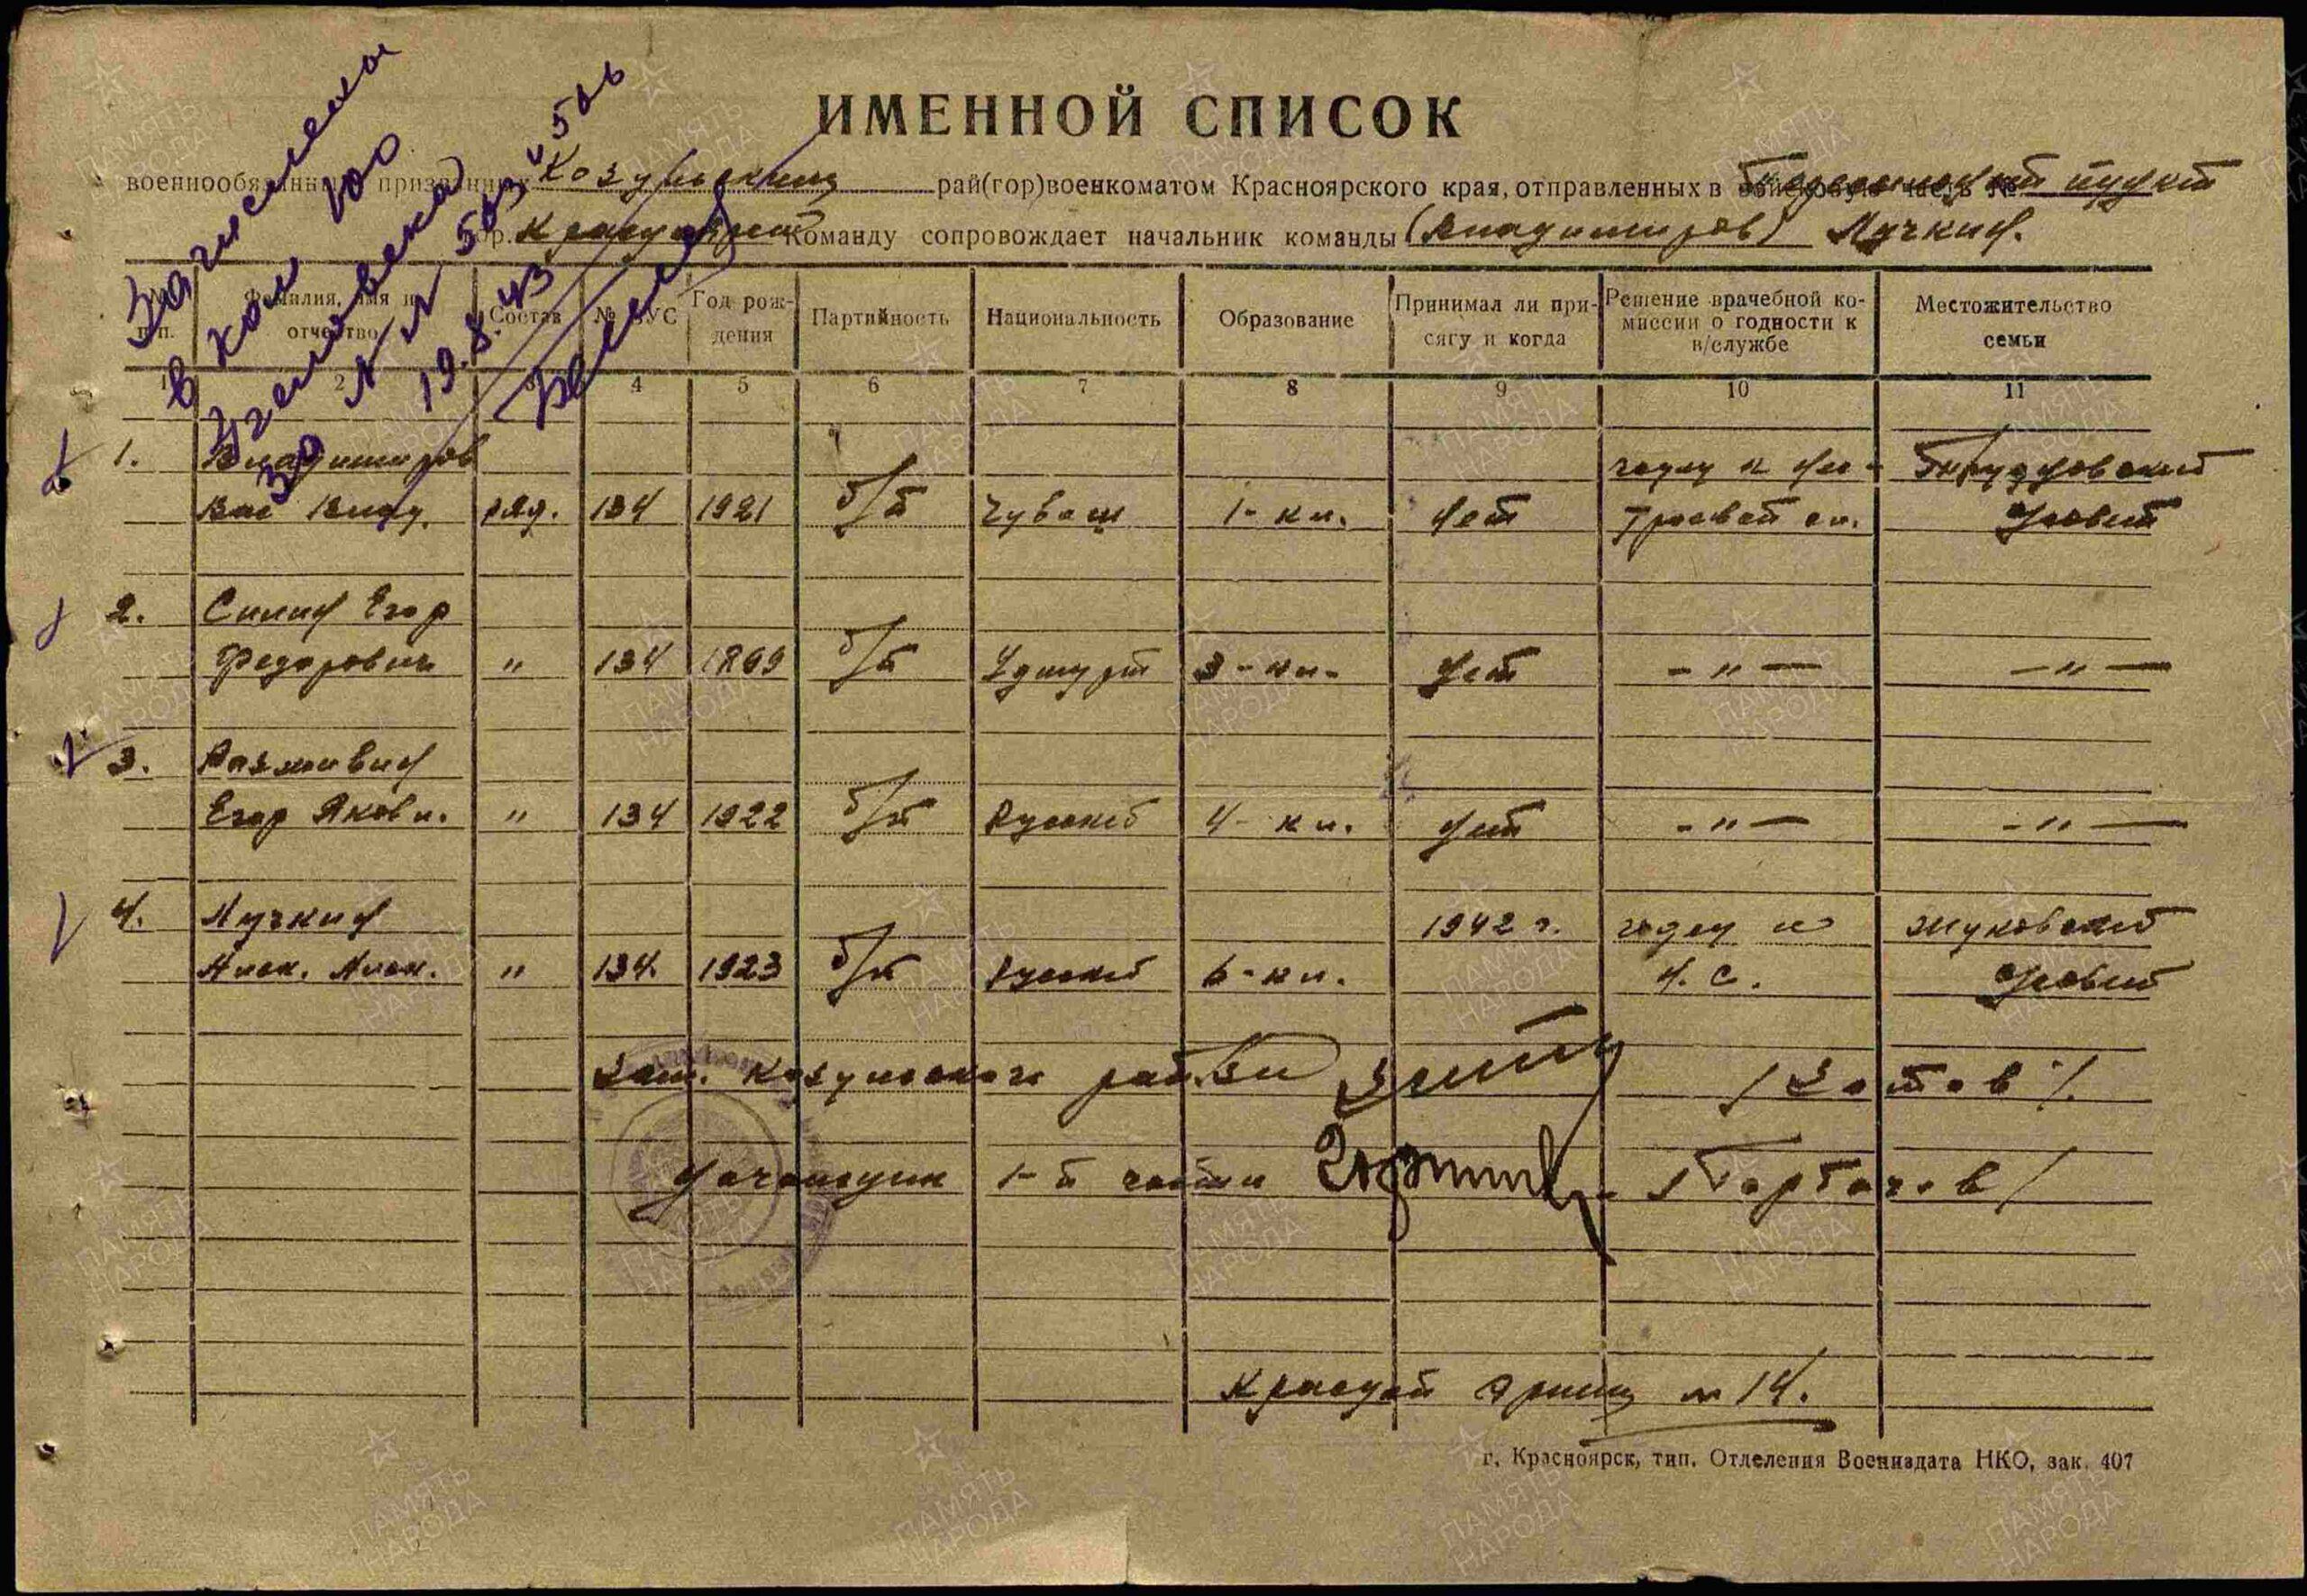 ИМЕННОЙ СПИСОК
военнообязанных призванных Козульским рай(гор)военкоматом Красноярского края, отправленных в пункт
гор. Красноярск Команду сопровождает начальник команды (Владимиров) Лучкин.
Зачислены
в кол
человека
30 № № 503 и 506
19.8.43
№ п.п.
Фамилия, имя и отчество
Состав
№ ВУС
Год рождения
Партийность
Национальность
Образование
Принимал ли присягу и когда
Решение врачебной комиссии о годности к в/службе
Местожительство семьи
1 2 3 4 5 6 7 8 9 10 11
1. Владимиров годен к не- совет
Вас Влад. ряд. 134 1921 б/п Чуваш 1-кл. Нет строевой сл.
2. Силин Егор
Федорович " 134 1899 б/п Удмурт 3-кл. Нет -"- -"-
3. Разживин
Егор Яковл. " 134 1922 б/п Русский 4-кл. Нет -"- -"-
4. Лучкин 1942 г. годен к Жуковский
Алек. Алек. " 134 1923 б/п Русский 6-кл. н.с. с/совет
Козульского рай.в/к /Зотов/.
Начальник 1-й части /Горбачев/
Красной Армии № 14.
г. Красноярск, тип. Отделения Воениздата НКО, зак. 407
ПАМЯТЬ НАРОДА